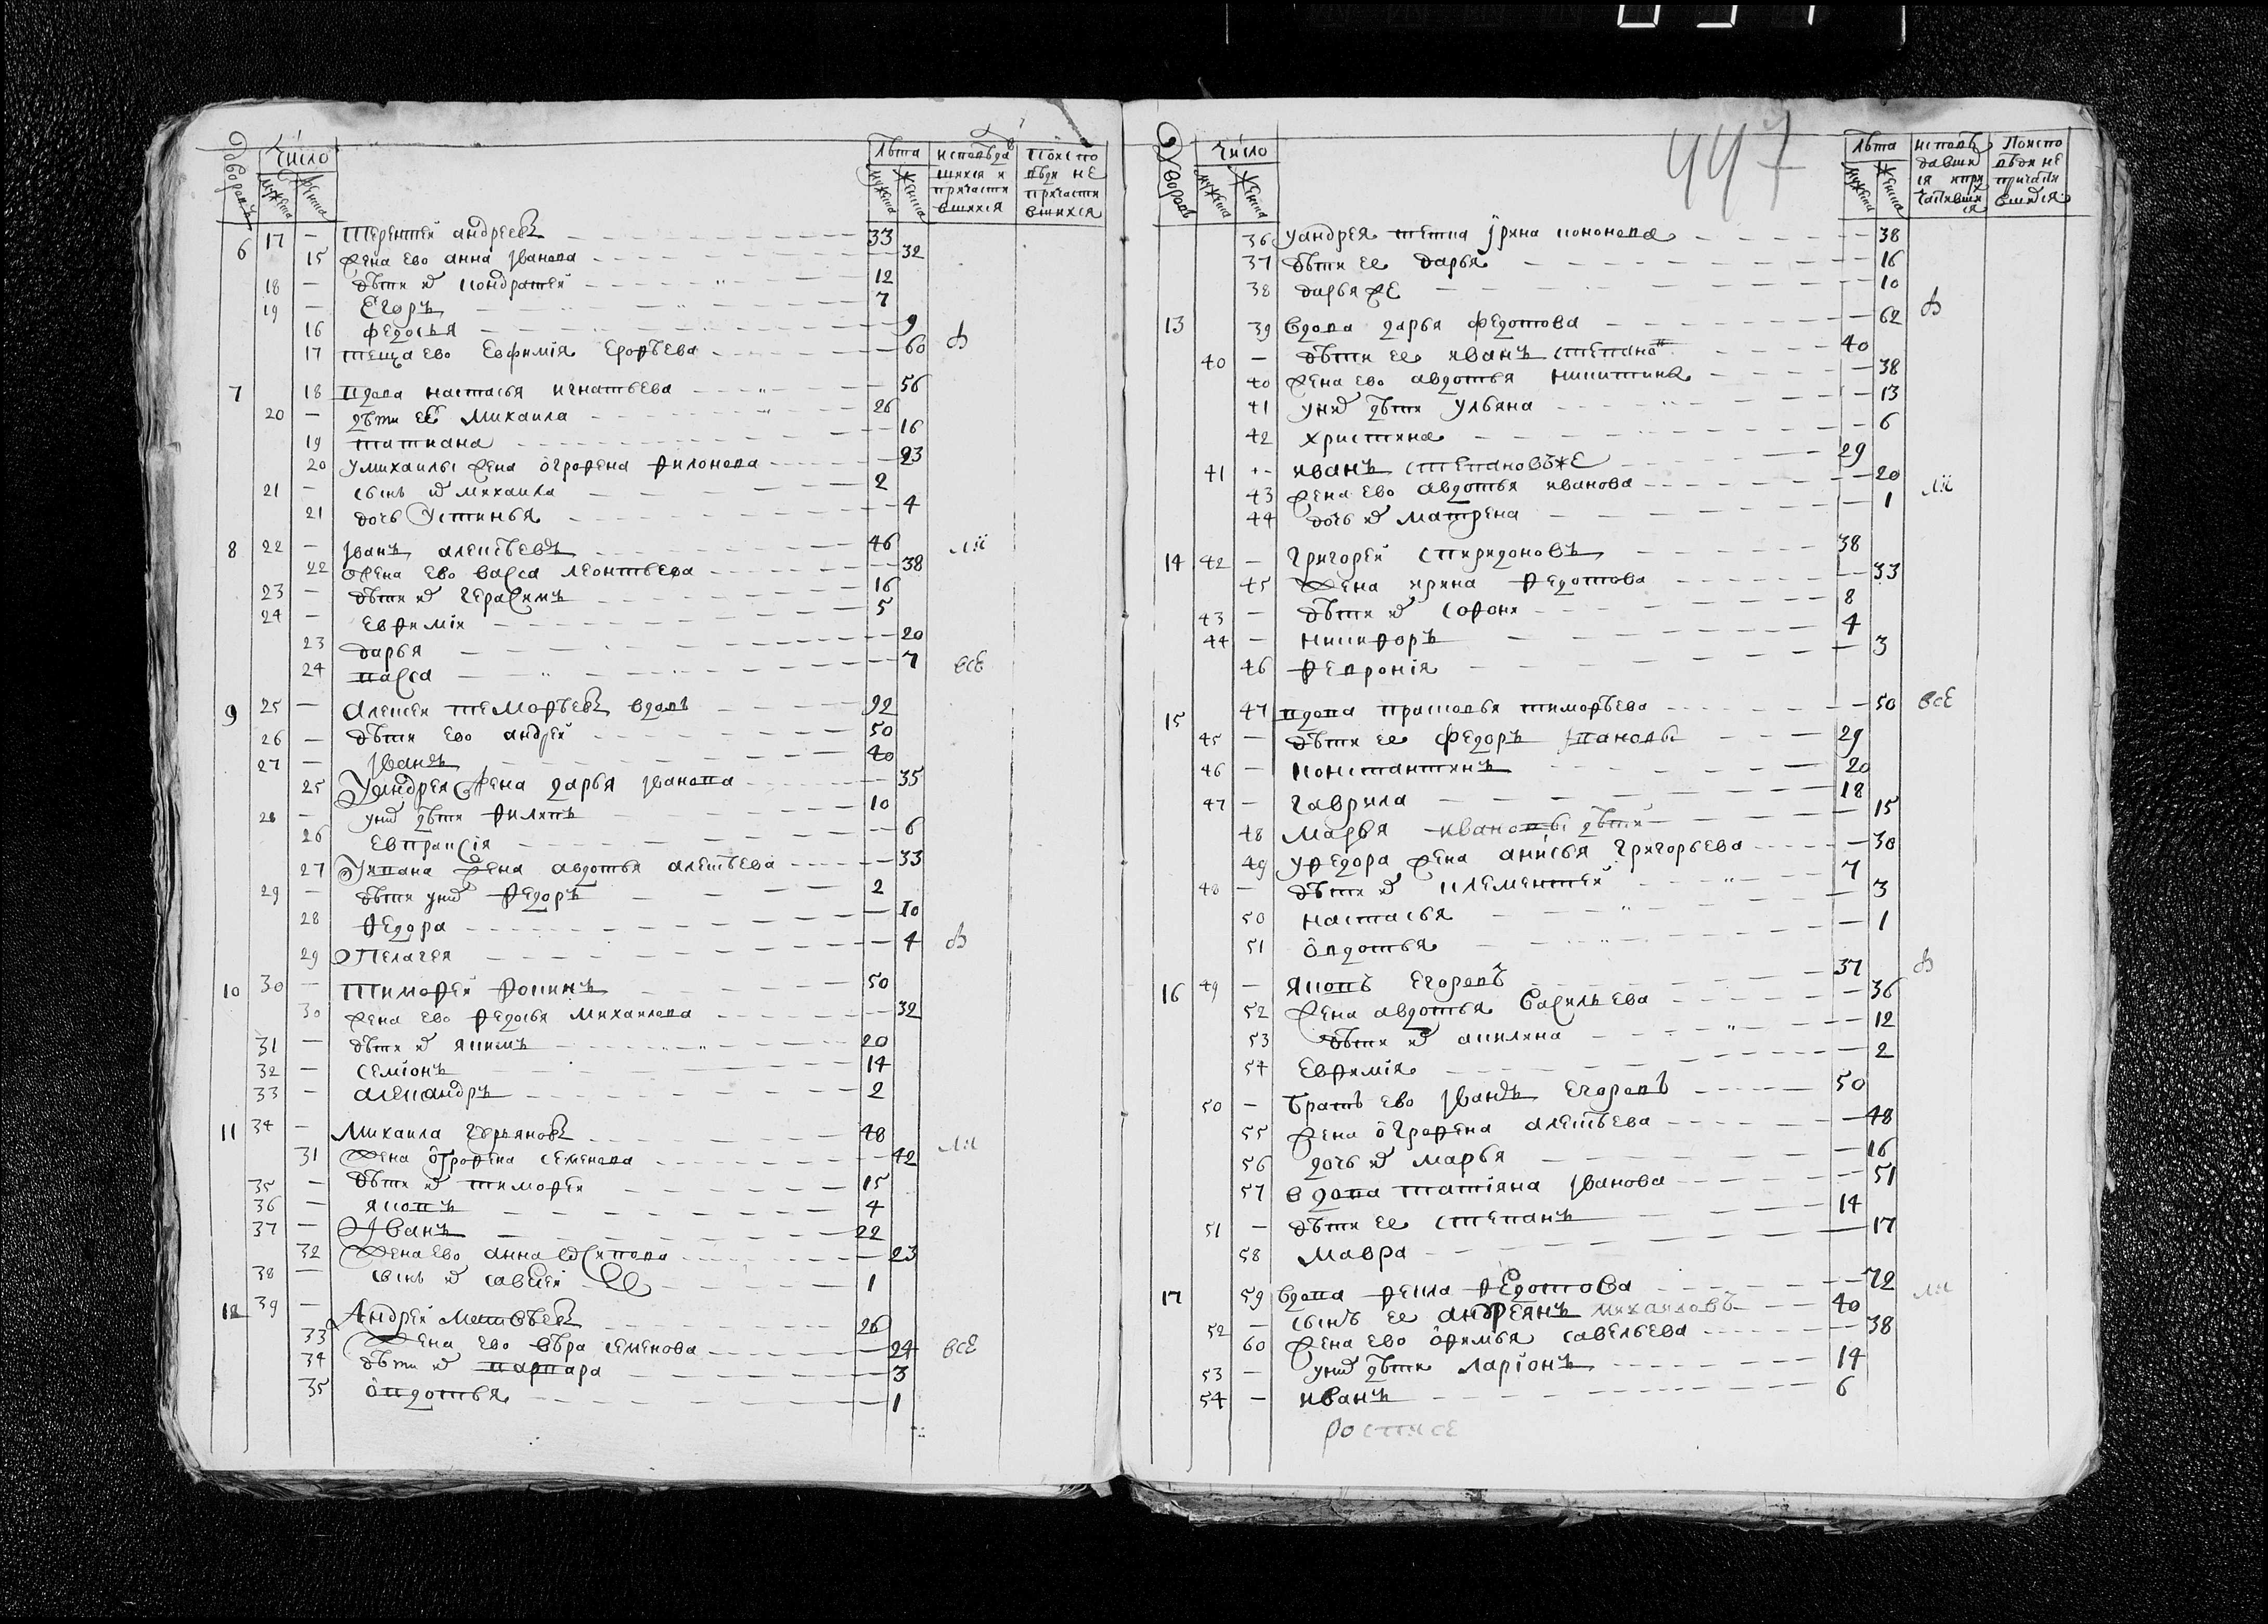 Дворовъ Число Мужеска Женска Лѣта Мужеска Женска исповѣдавшихся и причастившихся По исповѣди не причастившихся
6 17 — Терентей андреевъ 33
15 жена ево анна Иванова 32
18 — дѣти их кондратей 12
19 — Егоръ 7
16 федосья 9
17 теща ево Евфимія Егорьева 60
7 18 вдова настасья игнатьева 56
20 — дѣти её михаила 26
19 татиана 16
20 у михаилы жена огрофена филонова 23
21 — сынъ их михаила 2
21 дочь Устинья 4
8 22 — Иванъ алексѣевъ 46
22 жена ево васса леонтьева 38
23 — дѣти их герасимъ 16
24 — евфимій 5
23 дарья 20
24 васса 7 все
9 25 — алексей тимофѣевъ вдовъ 92
26 — дѣти ево андрей 50
27 — Иванъ 40
25 У андрея жена дарья Иванова 35
28 — у них дѣти филипъ 10
26 евпраксія 6
27 У ивана жена авдотья алексѣева 33
29 — дѣти у них федоръ 2
28 федора 10
29 Пелагея 4
10 30 — Тимофей фокинъ 50
30 жена ево федосья михаилова 32
31 — дѣти их якимъ 20
32 — семіонъ 14
33 — александръ 2
11 34 — Михаила 48
31 жена огрофена семенова 42
35 — дѣти их тимофей 15
36 — яковъ 4
37 — Иванъ 22
32 жена ево анна осипова 23
38 — сынъ их савелей 1
12 39 — Андрей матвѣевъ 26
33 жена ево вѣра семенова 24 все
34 дѣти их варвара 3
35 овдотья 1
447
Дворовъ Число Мужеска Женска Лѣта Мужеска Женска исповѣдавшися и причастившихся По исповѣди не причастившися
36 у андрея тетка Ірина кононова 38
37 дѣти ее дарья 16
38 дарья же 10
13 39 вдова дарья федотова 62
40 — дѣти ее иванъ степанов 40
40 жена ево авдотья никитина 38
41 у них дѣти ульяна 13
42 христина 6
41 — иванъ степановъ же 29
43 жена ево авдотья иванова 20
44 дочь их матрена 1
14 42 — григорей спиридоновъ 38
45 жена ирина федотова 33
43 — дѣти их софон 8
44 — никифоръ 4
46 февронія 3
15 47 вдова прасковья тимофѣева 50 все
45 — дѣти ее федоръ Ивановъ 29
46 — константинъ 20
47 — гаврила 18
48 марья ивановы дѣти 15
49 у федора жена анисья григорьева 30
48 — дѣти их клементей 7
50 настасья 3
51 овдотья 1
16 49 — яковъ егоровъ 37
52 жена авдотья васильева 36
53 дѣти их акилина 12
54 евфимія 2
50 — братъ ево Иванъ егоровъ 50
55 жена огрофена алексѣева 48
56 дочь их марья 16
57 вдова татіяна Иванова 51
51 — дѣти ее степанъ 14
58 мавра 17
17 59 вдова фекла федотова 72
52 — сынъ ее андреянъ михаиловъ 40
60 жена ево офимья савельева 38
53 — у них дѣти ларіонъ 14
54 — иванъ 6